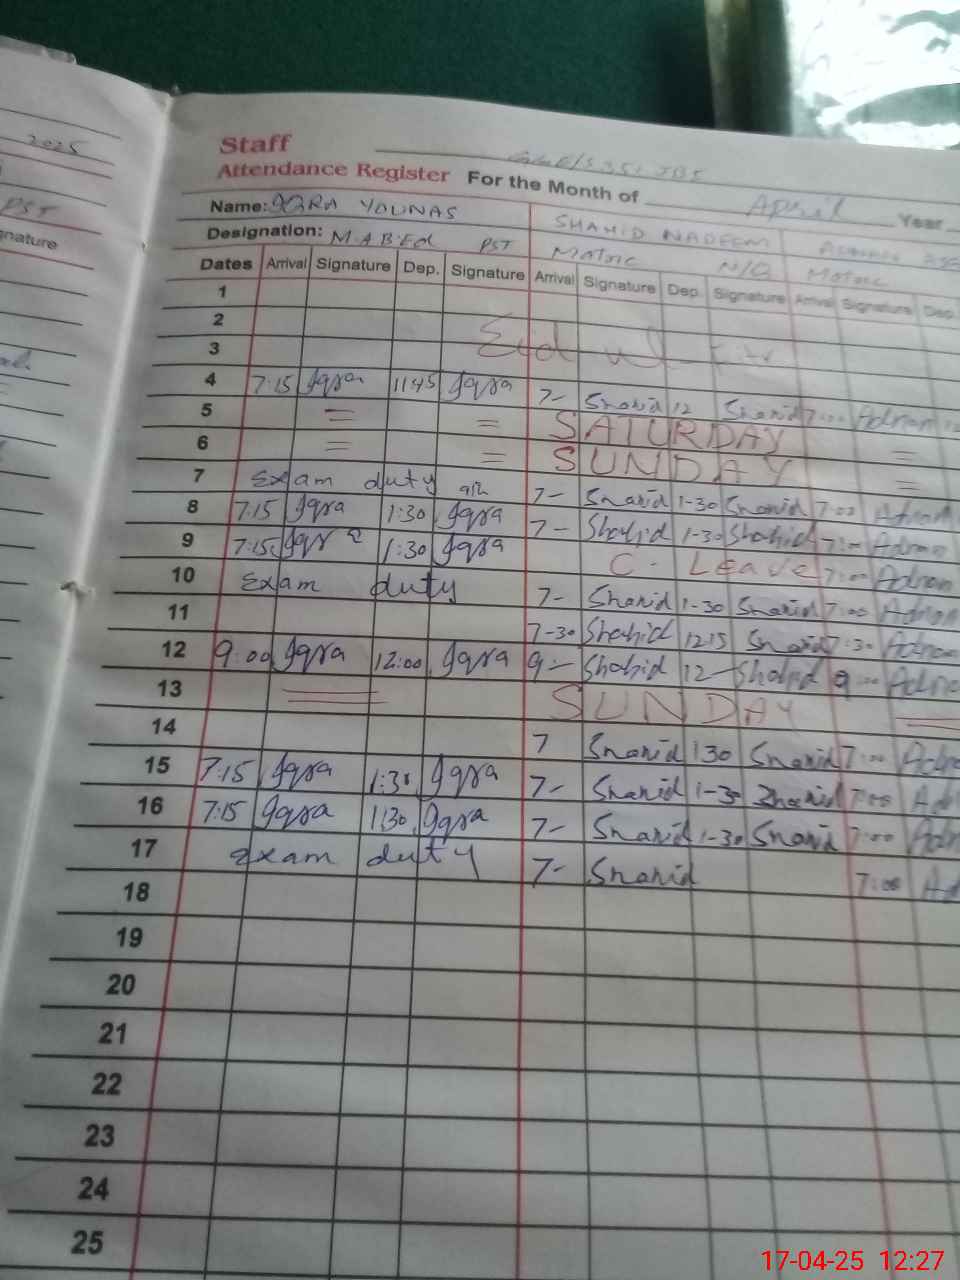 2025
PST
Staff
Attendance Register For the Month of April Year
Name: IQRA YOUNAS SHAHID NADEEM
Designation: M.A B.Ed PST Matric N/Q Matric
Dates Arrival Signature Dep. Signature Arrival Signature Dep. Signature Arrival Signature Dep.
1
2 Eid ul Fitr
3
4 7:15 Iqra 1145 Iqra 7- Shahid 12 Shahid 7:00 Adnan
5 = = SATURDAY =
6 = = SUNDAY =
7 Exam duty 7- Shahid 1-30 Shahid 7:00 Adnan
8 7:15 Iqra 1:30 Iqra 7- Shahid 1-30 Shahid 7:00 Adnan
9 7:15 Iqra 1:30 Iqra C. Leave 7:00 Adnan
10 Exam duty 7- Shahid 1-30 Shahid 7:00 Adnan
11 7-30 Shahid 1215 Shahid 7:30 Adnan
12 9:00 Iqra 12:00 Iqra 9- Shahid 12- Shahid 9:00 Adna
13 = SUNDAY =
14 7 Shahid 130 Shahid 7:00 Adna
15 7:15 Iqra 1:30 Iqra 7- Shahid 1-30 Shahid 7:00 Ad
16 7:15 Iqra 1:30 Iqra 7- Shahid 1-30 Shahid 7:00 Ad
17 Exam duty 7- Shahid 7:00 Ad
18
19
20
21
22
23
24
25
17-04-25 12:27